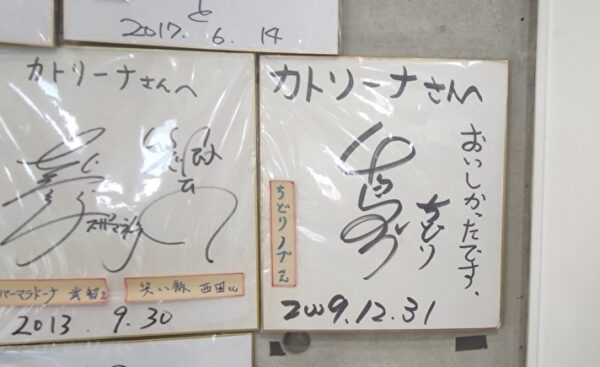 と
2017. 6. 14
カトリーナさんへ
パーマラドーナ 武智さん
笑い飯 西田さん
2013. 9. 30
カトリーナさんへ
おいしかったです。
ちどり
ちどり ノブさん
2009.12.31